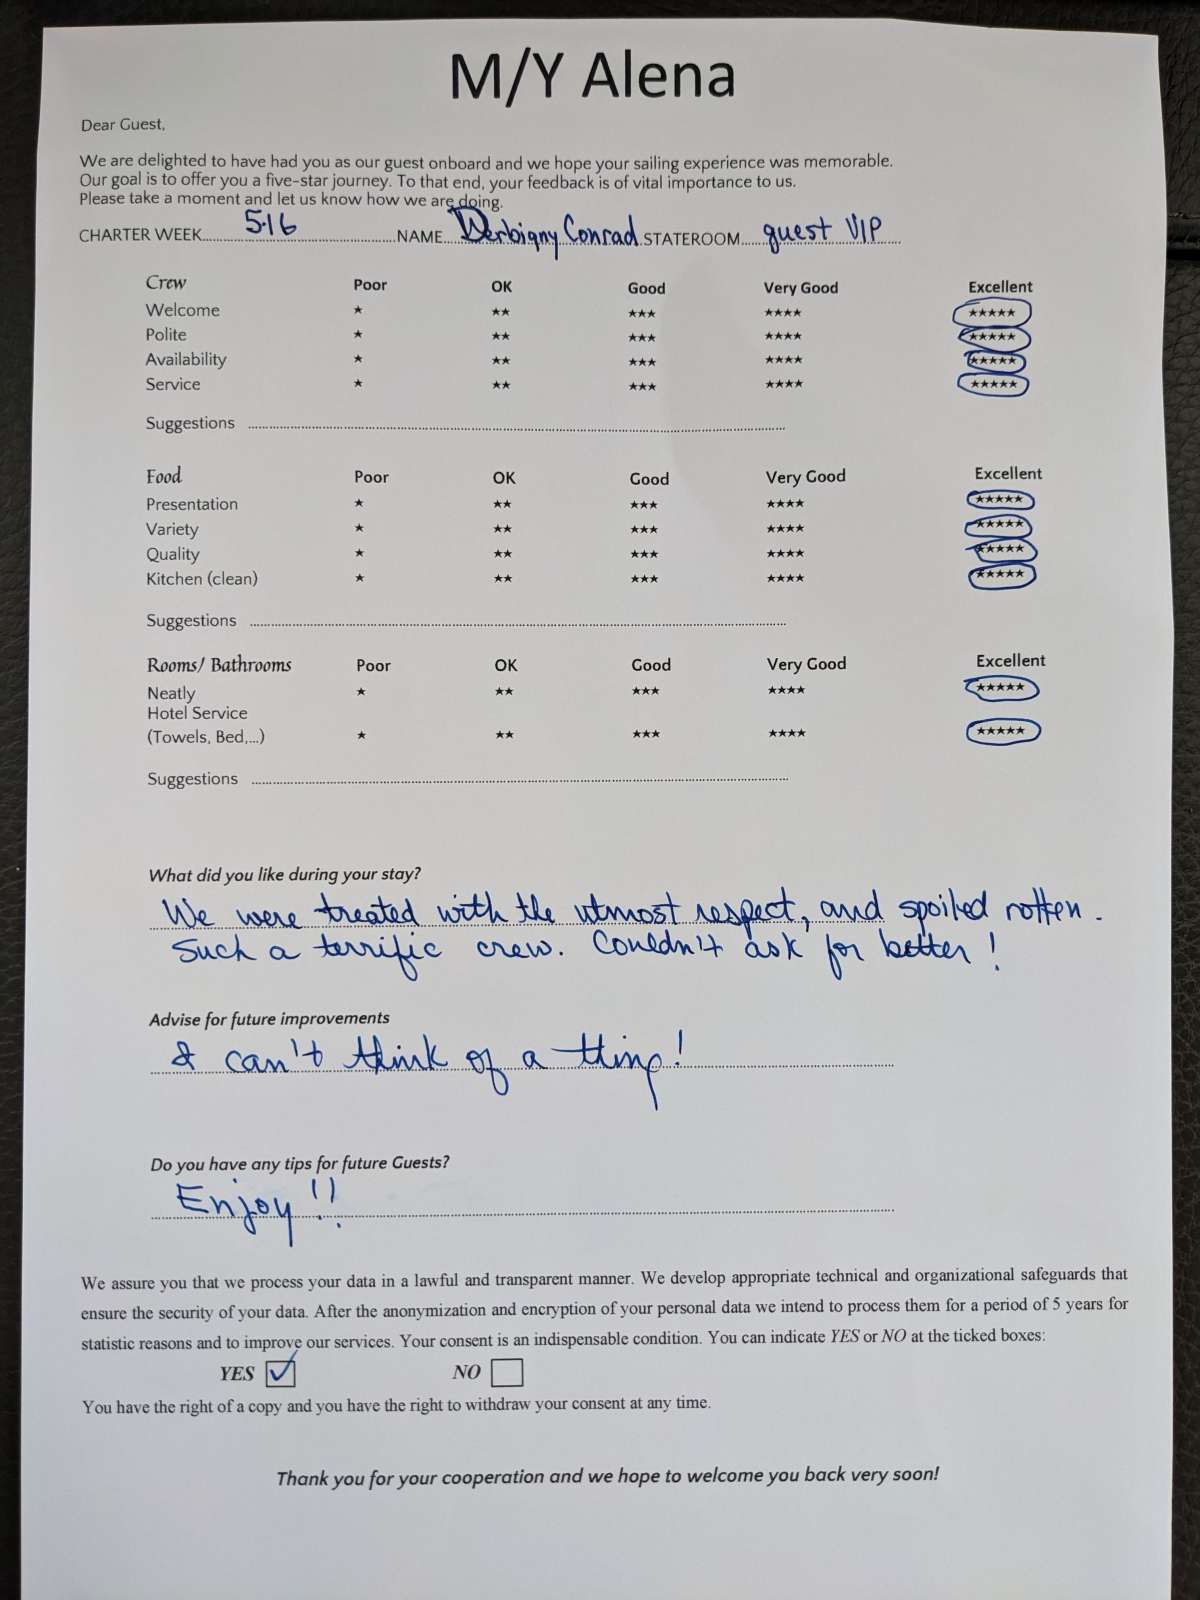 M/Y Alena
Dear Guest,
We are delighted to have had you as our guest onboard and we hope your sailing experience was memorable.
Our goal is to offer you a five-star journey. To that end, your feedback is of vital importance to us.
Please take a moment and let us know how we are doing.
CHARTER WEEK 5.16 NAME Derbigny Conrad STATEROOM guest VIP
Crew Poor OK Good Very Good Excellent
Welcome ★ ★★ ★★★ ★★★★ ★★★★★
Polite ★ ★★ ★★★ ★★★★ ★★★★★
Availability ★ ★★ ★★★ ★★★★ ★★★★★
Service ★ ★★ ★★★ ★★★★ ★★★★★
Suggestions
Food Poor OK Good Very Good Excellent
Presentation ★ ★★ ★★★ ★★★★ ★★★★★
Variety ★ ★★ ★★★ ★★★★ ★★★★★
Quality ★ ★★ ★★★ ★★★★ ★★★★★
Kitchen (clean) ★ ★★ ★★★ ★★★★ ★★★★★
Suggestions
Rooms/ Bathrooms Poor OK Good Very Good Excellent
Neatly ★ ★★ ★★★ ★★★★ ★★★★★
Hotel Service
(Towels, Bed,...) ★ ★★ ★★★ ★★★★ ★★★★★
Suggestions
What did you like during your stay?
We were treated with the utmost respect, and spoiled rotten.
Such a terrific crew. Couldn't ask for better!
Advise for future improvements
I can't think of a thing!
Do you have any tips for future Guests?
Enjoy!!
We assure you that we process your data in a lawful and transparent manner. We develop appropriate technical and organizational safeguards that
ensure the security of your data. After the anonymization and encryption of your personal data we intend to process them for a period of 5 years for
statistic reasons and to improve our services. Your consent is an indispensable condition. You can indicate YES or NO at the ticked boxes:
YES ☑ NO ☐
You have the right of a copy and you have the right to withdraw your consent at any time.
Thank you for your cooperation and we hope to welcome you back very soon!